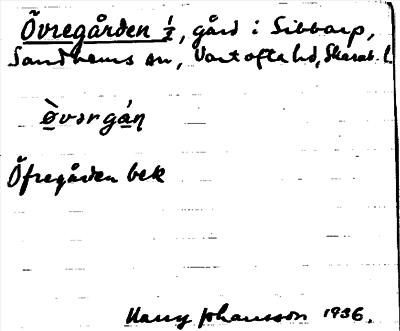 Övregården 1/2, gård i Sibbarp,
Sandhems sn, Vartofta hd, Skarab. l.
ø̀vərgá̱n
Öfregården bek
Harry Johansson 1936.